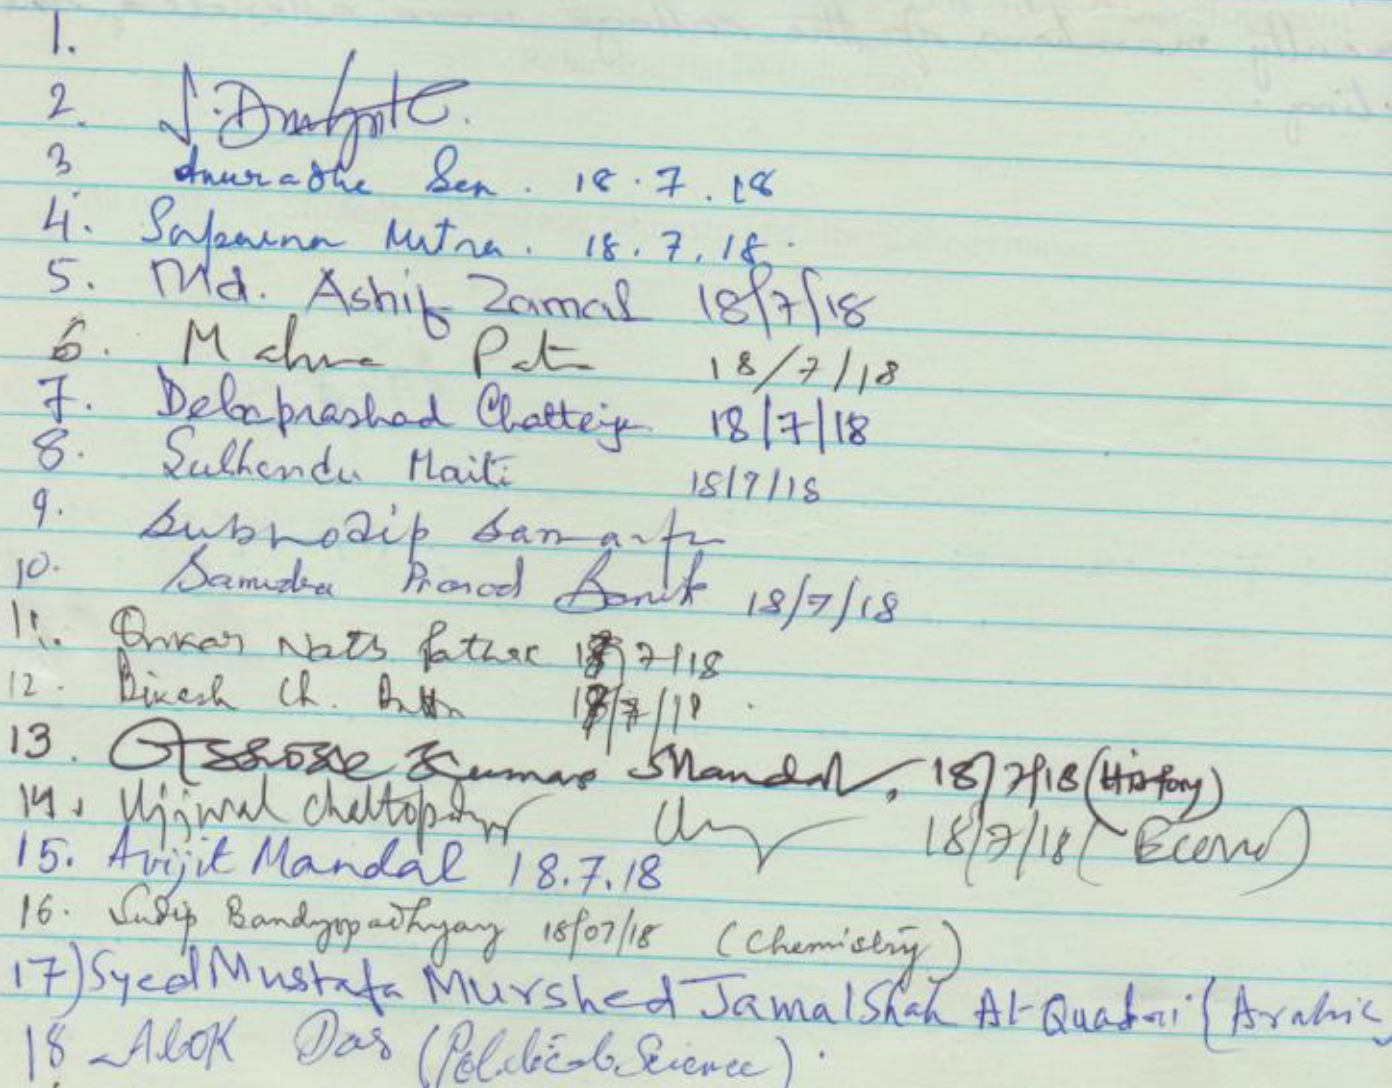 1.
2.
3 Anuradha Sen. 18.7.18
4. Suparna Mitra. 18.7.18.
5. Md. Ashif Zamal 18/7/18
6. Mahua Patra 18/7/18
7. Debaprashad Chatterjee 18/7/18
8. Maiti 18/7/18
9. Subhodip Samanta
10. Prasod Banik 18/7/18
11. Onkar Nath Pathak 18/7/18
12. Bikash Ch. 18/7/18.
13. Ashoke Kumar Mandal, 18/7/18 (History)
14. Ujjwal Chattopadhyay 18/7/18 (Econo)
15. Avijit Mandal 18.7.18
16. Sudip Bandyopadhyay 18/07/18 (Chemistry)
17) Syed Mustafa Murshed Jamal Shah Al-Quadri (Arabic)
18 Alok Das (Political Science).